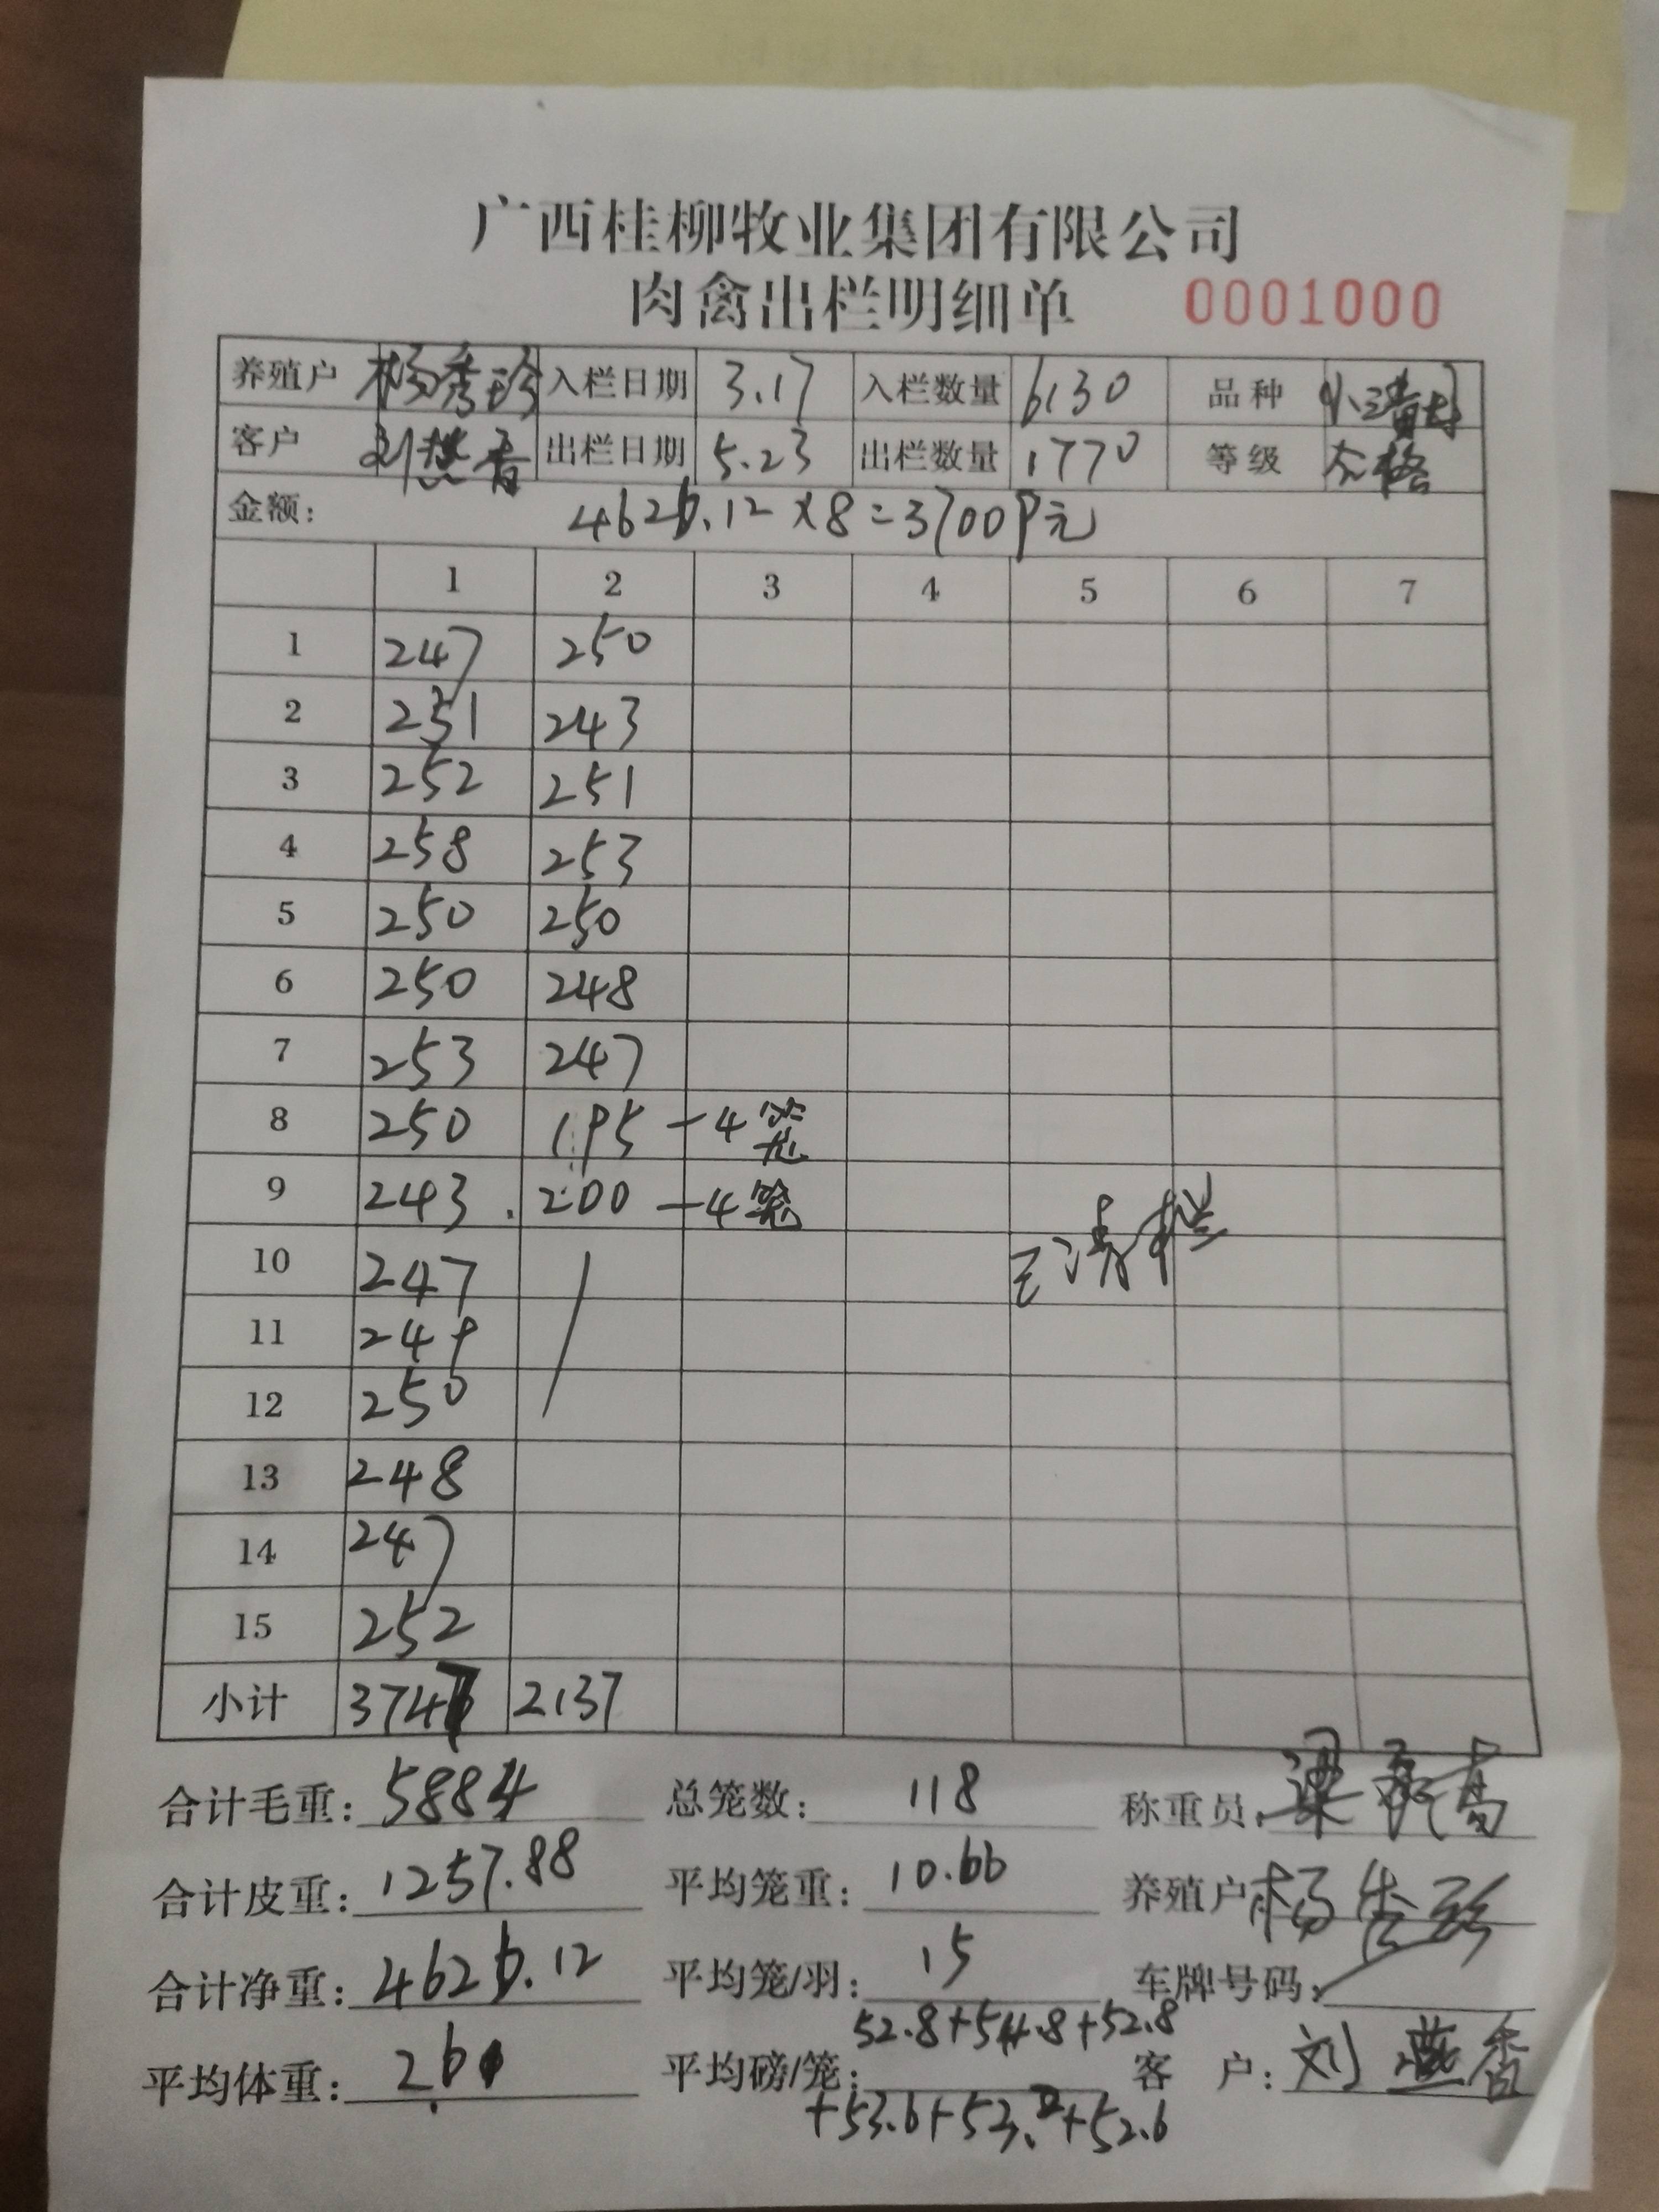 广西桂柳牧业集团有限公司
肉禽出栏明细单 0001000
养殖户 杨秀珍 入栏日期 3.17 入栏数量 6130 品种
客户 刘燕香 出栏日期 5.23 出栏数量 1770 等级 合格
金额: 4626.12×8=37009元
1 2 3 4 5 6 7
1 247 250
2 251 243
3 252 251
4 258 253
5 250 250
6 250 248
7 253 247
8 250 195 - 4笼
9 243 . 200 - 4笼
已清栏
10 247
11 249
12 250
13 248
14 247
15 252
小计 3747 2137
合计毛重: 5884 总笼数: 118 称重员:
合计皮重: 1257.88 平均笼重: 10.66 养殖户 杨秀珍
合计净重: 4626.12 平均笼/羽: 15 车牌号码:
52.8+54.8+52.8
平均体重: 2.61 平均磅/笼: 客 户: 刘燕香
+53.6+53.2+52.6